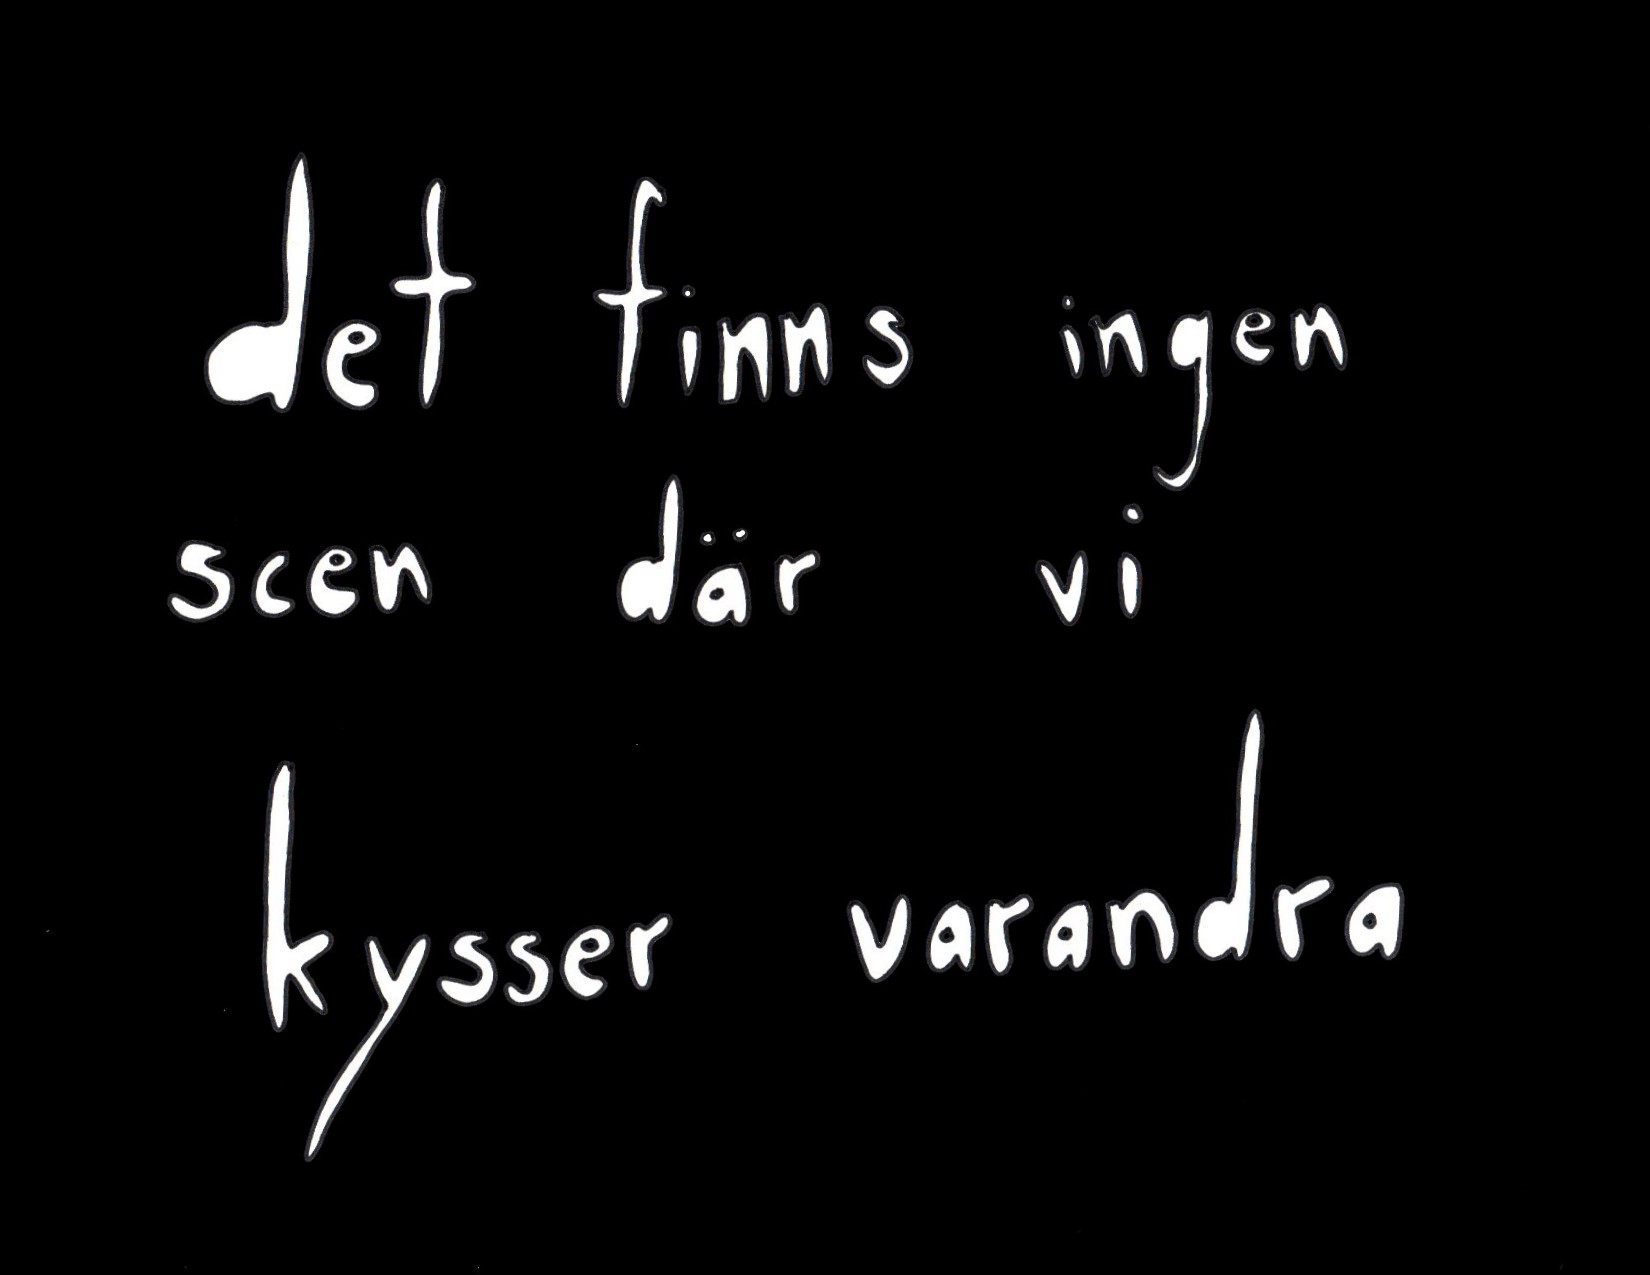 det finns ingen
scen där vi
kysser varandra